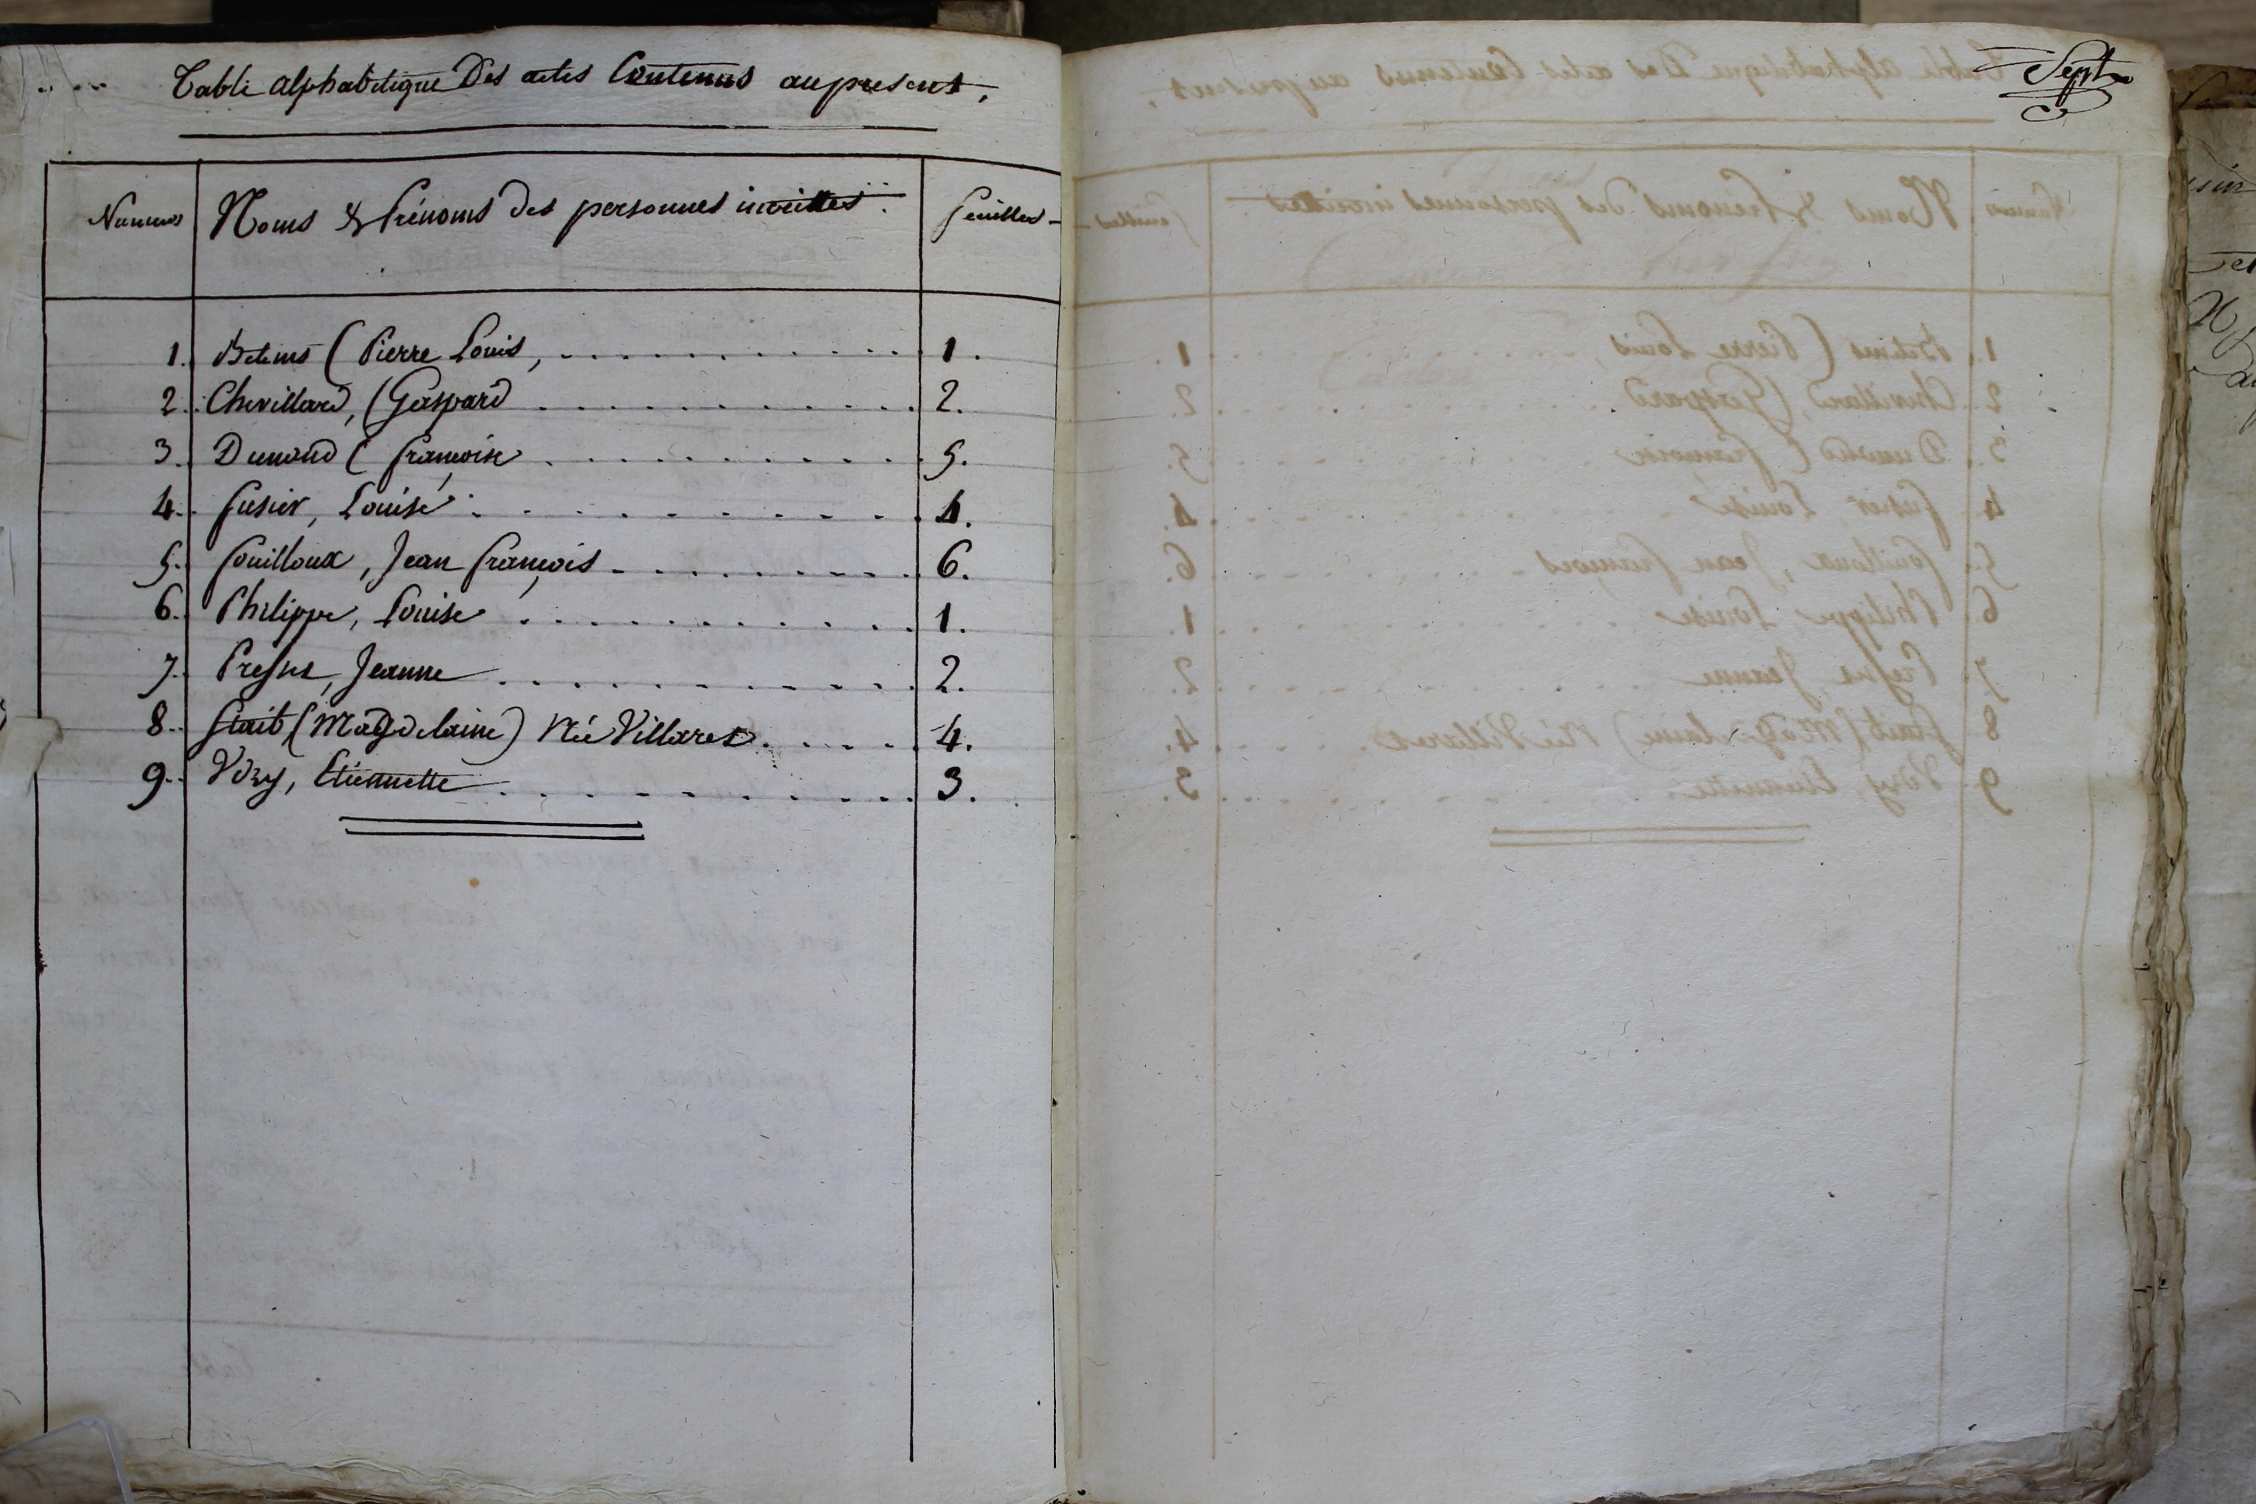 Table alphabetique Des actes Contenus au present,
Numeros Noms & Prénoms des personnes inscittes feuilles
1. Betems (Pierre Louis, 1.
2. Chevillard, (Gaspard 2.
3. Dunand (françoise 5.
4. fusier, Louise 4.
5. Pouilloux, Jean françois 6.
6. Philippe, Louise 1.
7. Jeanne 2.
8. (Magdelaine) Née Villaret 4.
9. Viry, Etiennette 3.
Sept